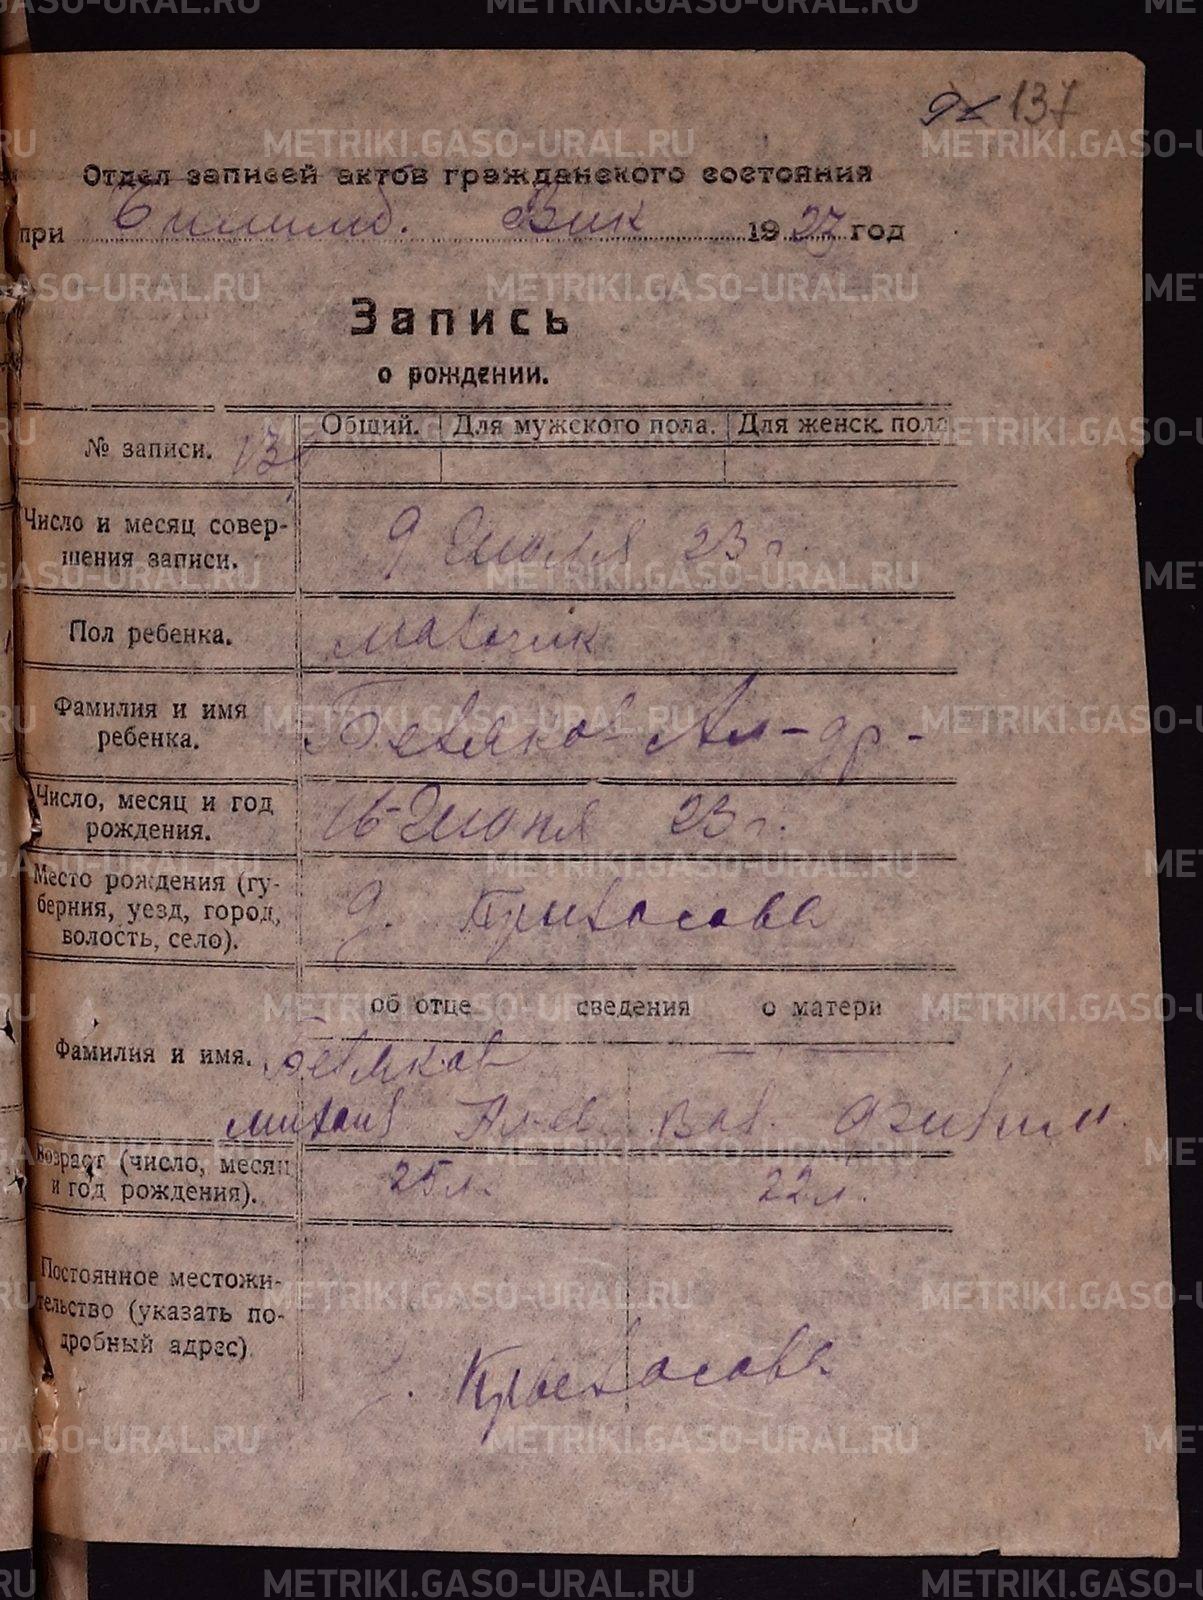 137
Отдел записей актов гражданского состояния
при Билимб. Вик 1923 год
Запись
о рождении.
Общий. Для мужского пола. Для женск. пола
№ записи.
Число и месяц совер-
шения записи.
9 Июля 23 г.
Пол ребенка.
мальчик
Фамилия и имя
ребенка.
Ал-др-
Число, месяц и год
рождения.
16 Июня 23 г.
Место рождения (гу-
берния, уезд, город,
волость, село).
д. Крылосова
об отце сведения о матери
Фамилия и имя.
Михаил
Возраст (число, месяц
и год рождения).
25 л. 22 л.
Постоянное местожи-
тельство (указать по-
дробный адрес)
д. Крылосова
METRIKI.GASO-URAL.RU